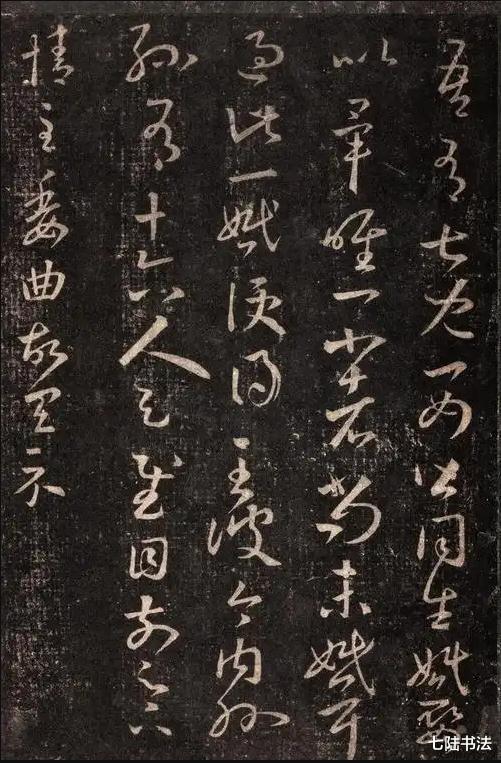 吾有七儿一女皆同生婚娶
以毕唯一小者尚未婚耳
过此一婚便得至彼今内外
孙有十六人足慰目前足下
情至委曲故具示
七陆书法